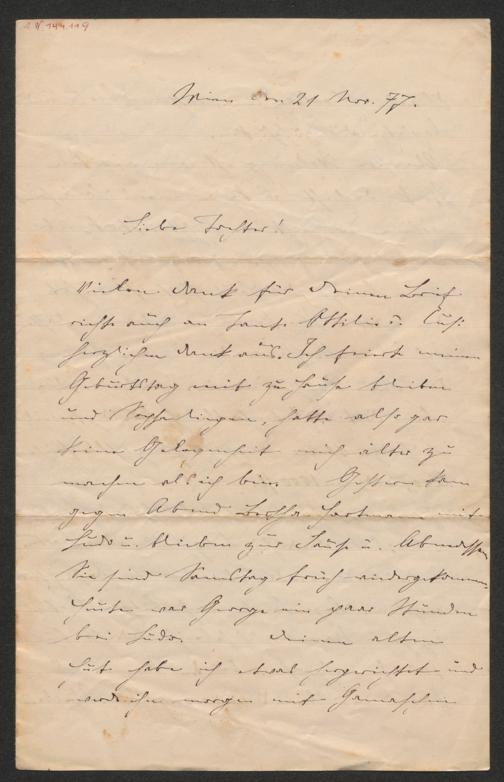 Wien den 21 Nov. 77.
Liebe Tochter!
Vielen Dank für Deinen Brief
richte auch an Tante Ottilie u.
herzlichen Dank aus. Ich feierte meinen
Geburtstag mit zu Hause bleiben
und Sopha liegen, hatte also gar
keine Gelegenheit mich älter zu
machen als ich bin. Gestern kam
gegen Abend Bertha Hartmann mit
Ludo u. blieben zur Jause u. Abendessen
Sie sind Samstag früh wiedergekommen
Heute war George ein paar Stunden
bei Ludo. Deinen alten
Hut habe ich etwas hergerichtet und
werde ihn morgen mit Gamaschen